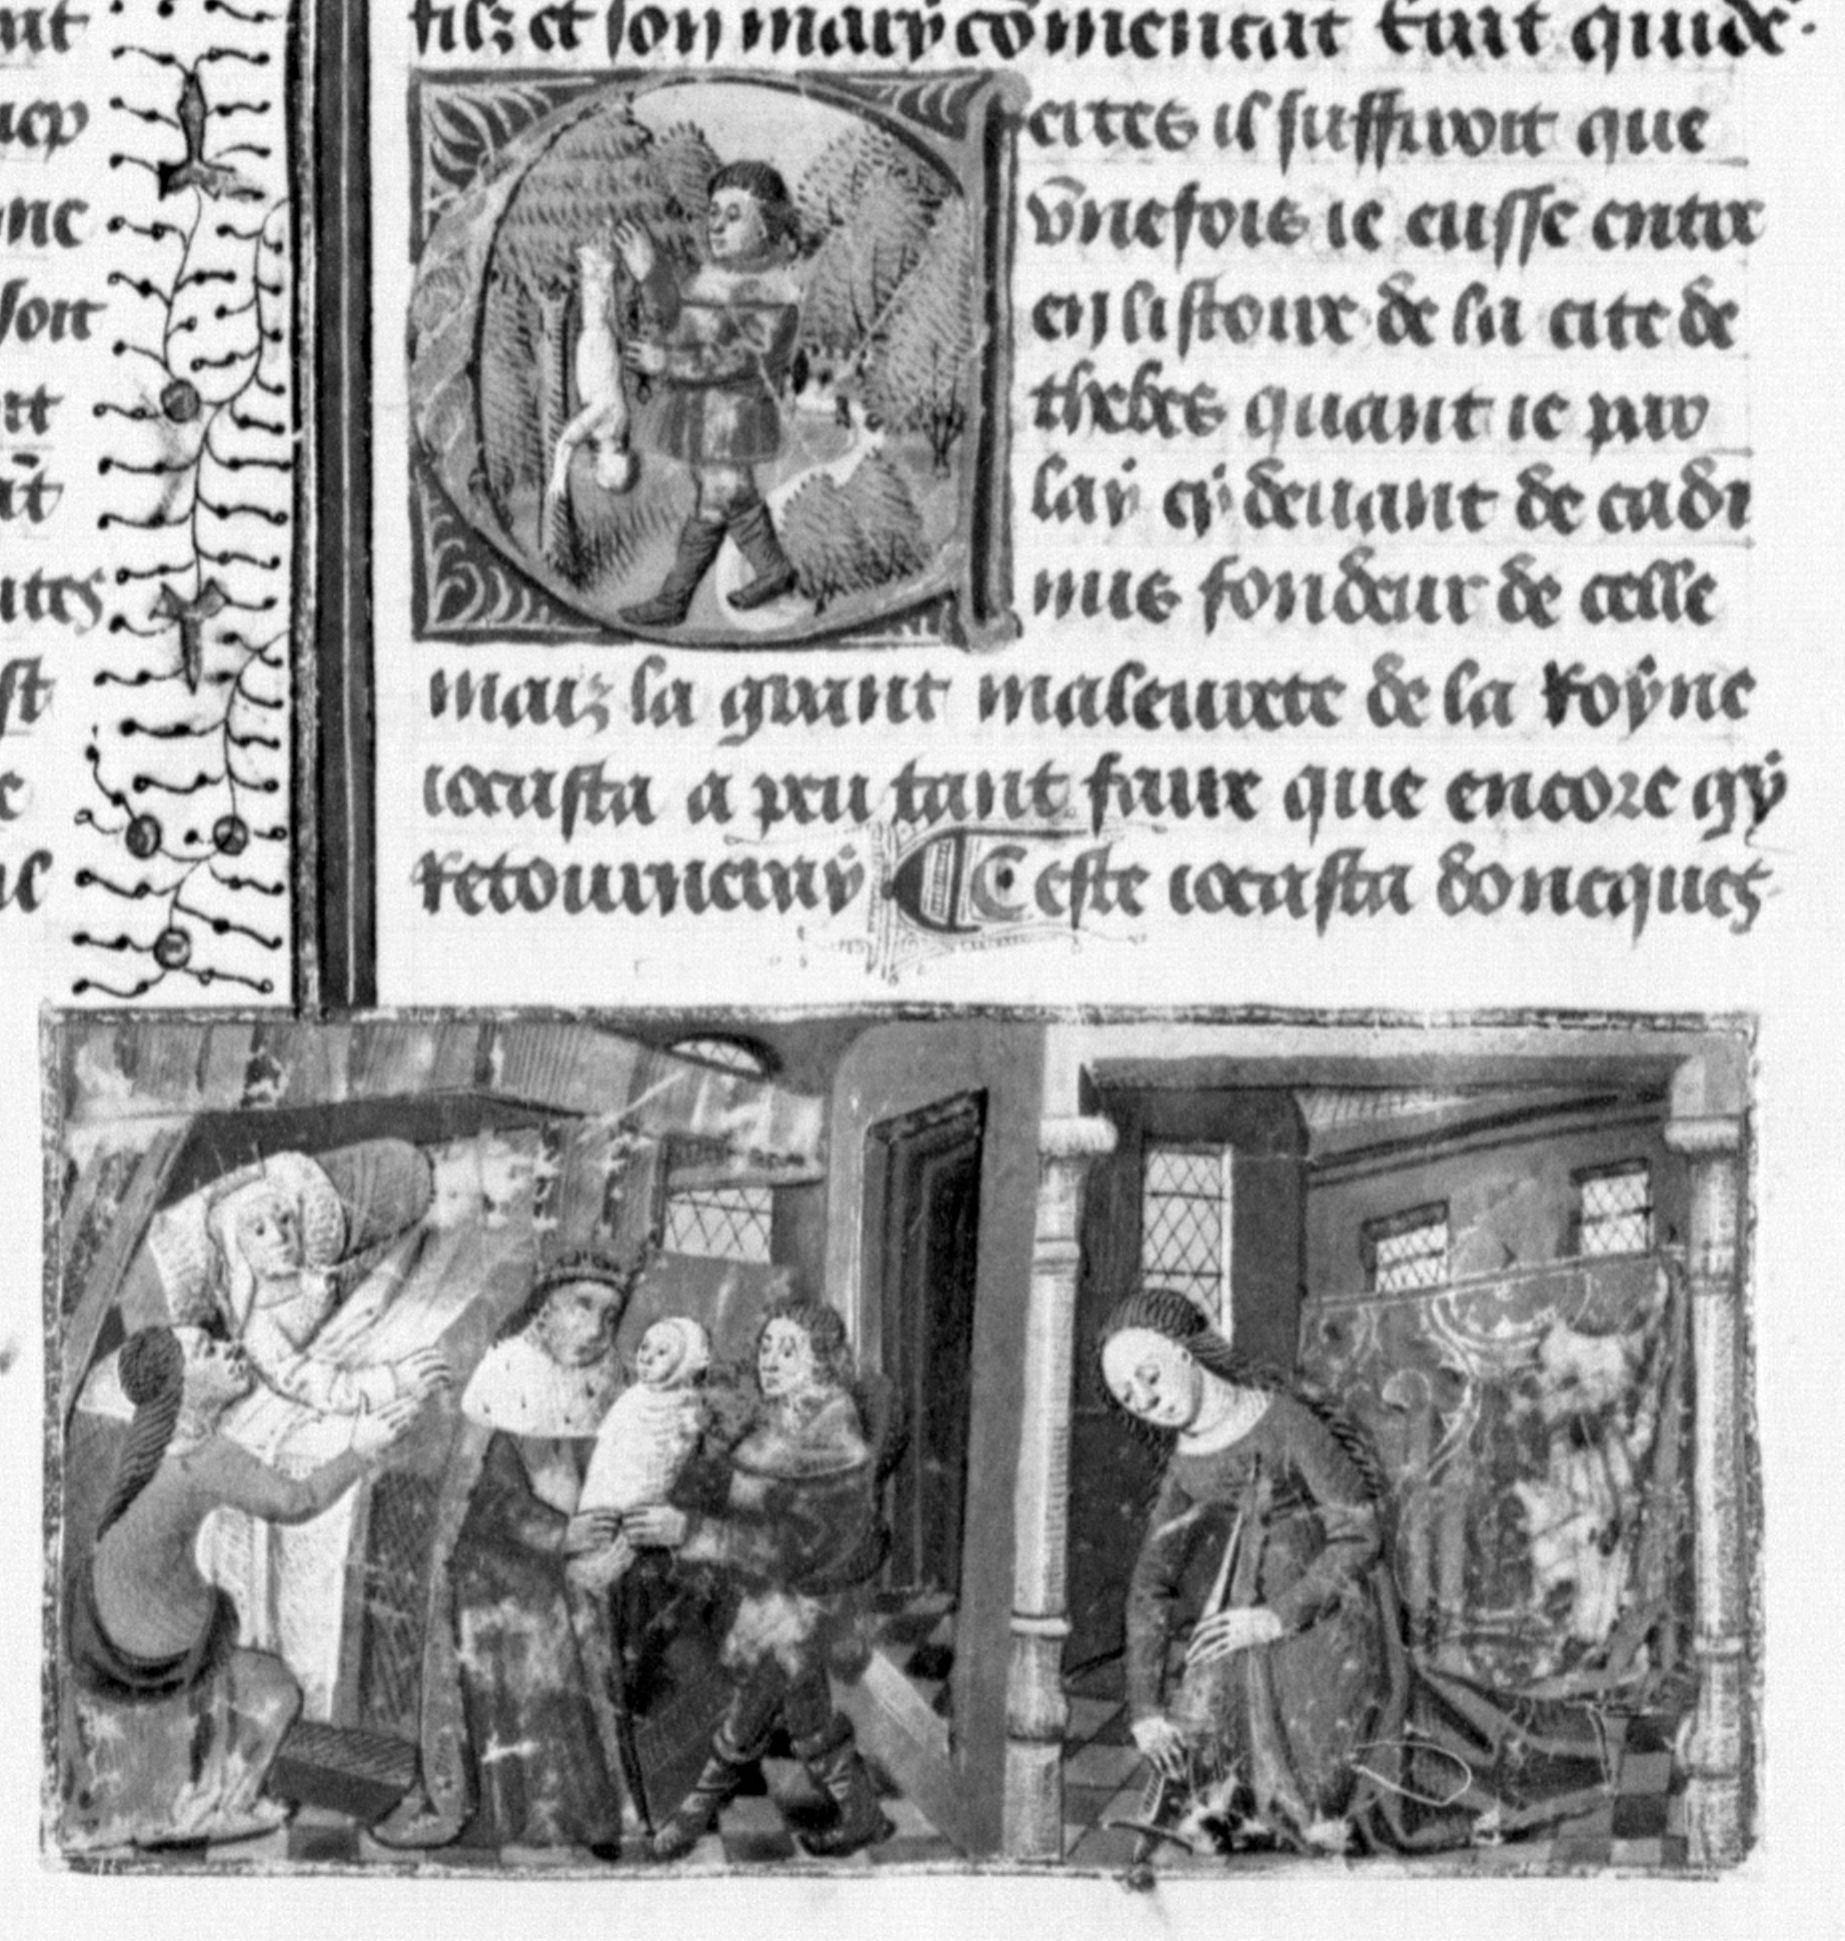 nt
uep
onc
soit
tt
āt
utes
st
c
ul
filz et son mary cōmencāt Erāt quidē·
Certes il suffiroit que
vne fois ie eusse entre
en listoire de la cite de
thebes quant ie par
lay cy deuant de cadi
mus fondeur de celle
maiz la grant maleurete de la Royne
iocasta a peu tant faire que encore gy
Retourneray Ceste iocasta doncques